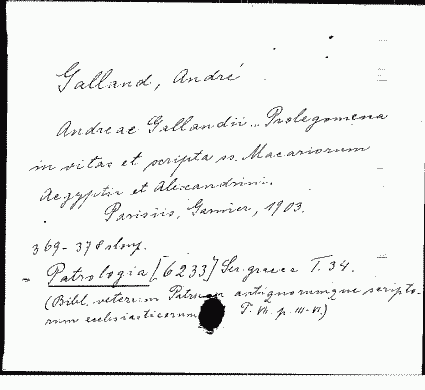 Galland, André
Andreae Gallandii... Prolegomena
in vitas et scripta ss. Macariorum
Aegyptii et Alexandrini.
Parisiis, Garnier, 1903.
369-378 słoup.
= Patrologia [6233] Ser. graeca T. 34.
(Bibl. veterum Patrum antiquorumque scripto-
rum ecclesiasticorum T. VII. p. III-VI)